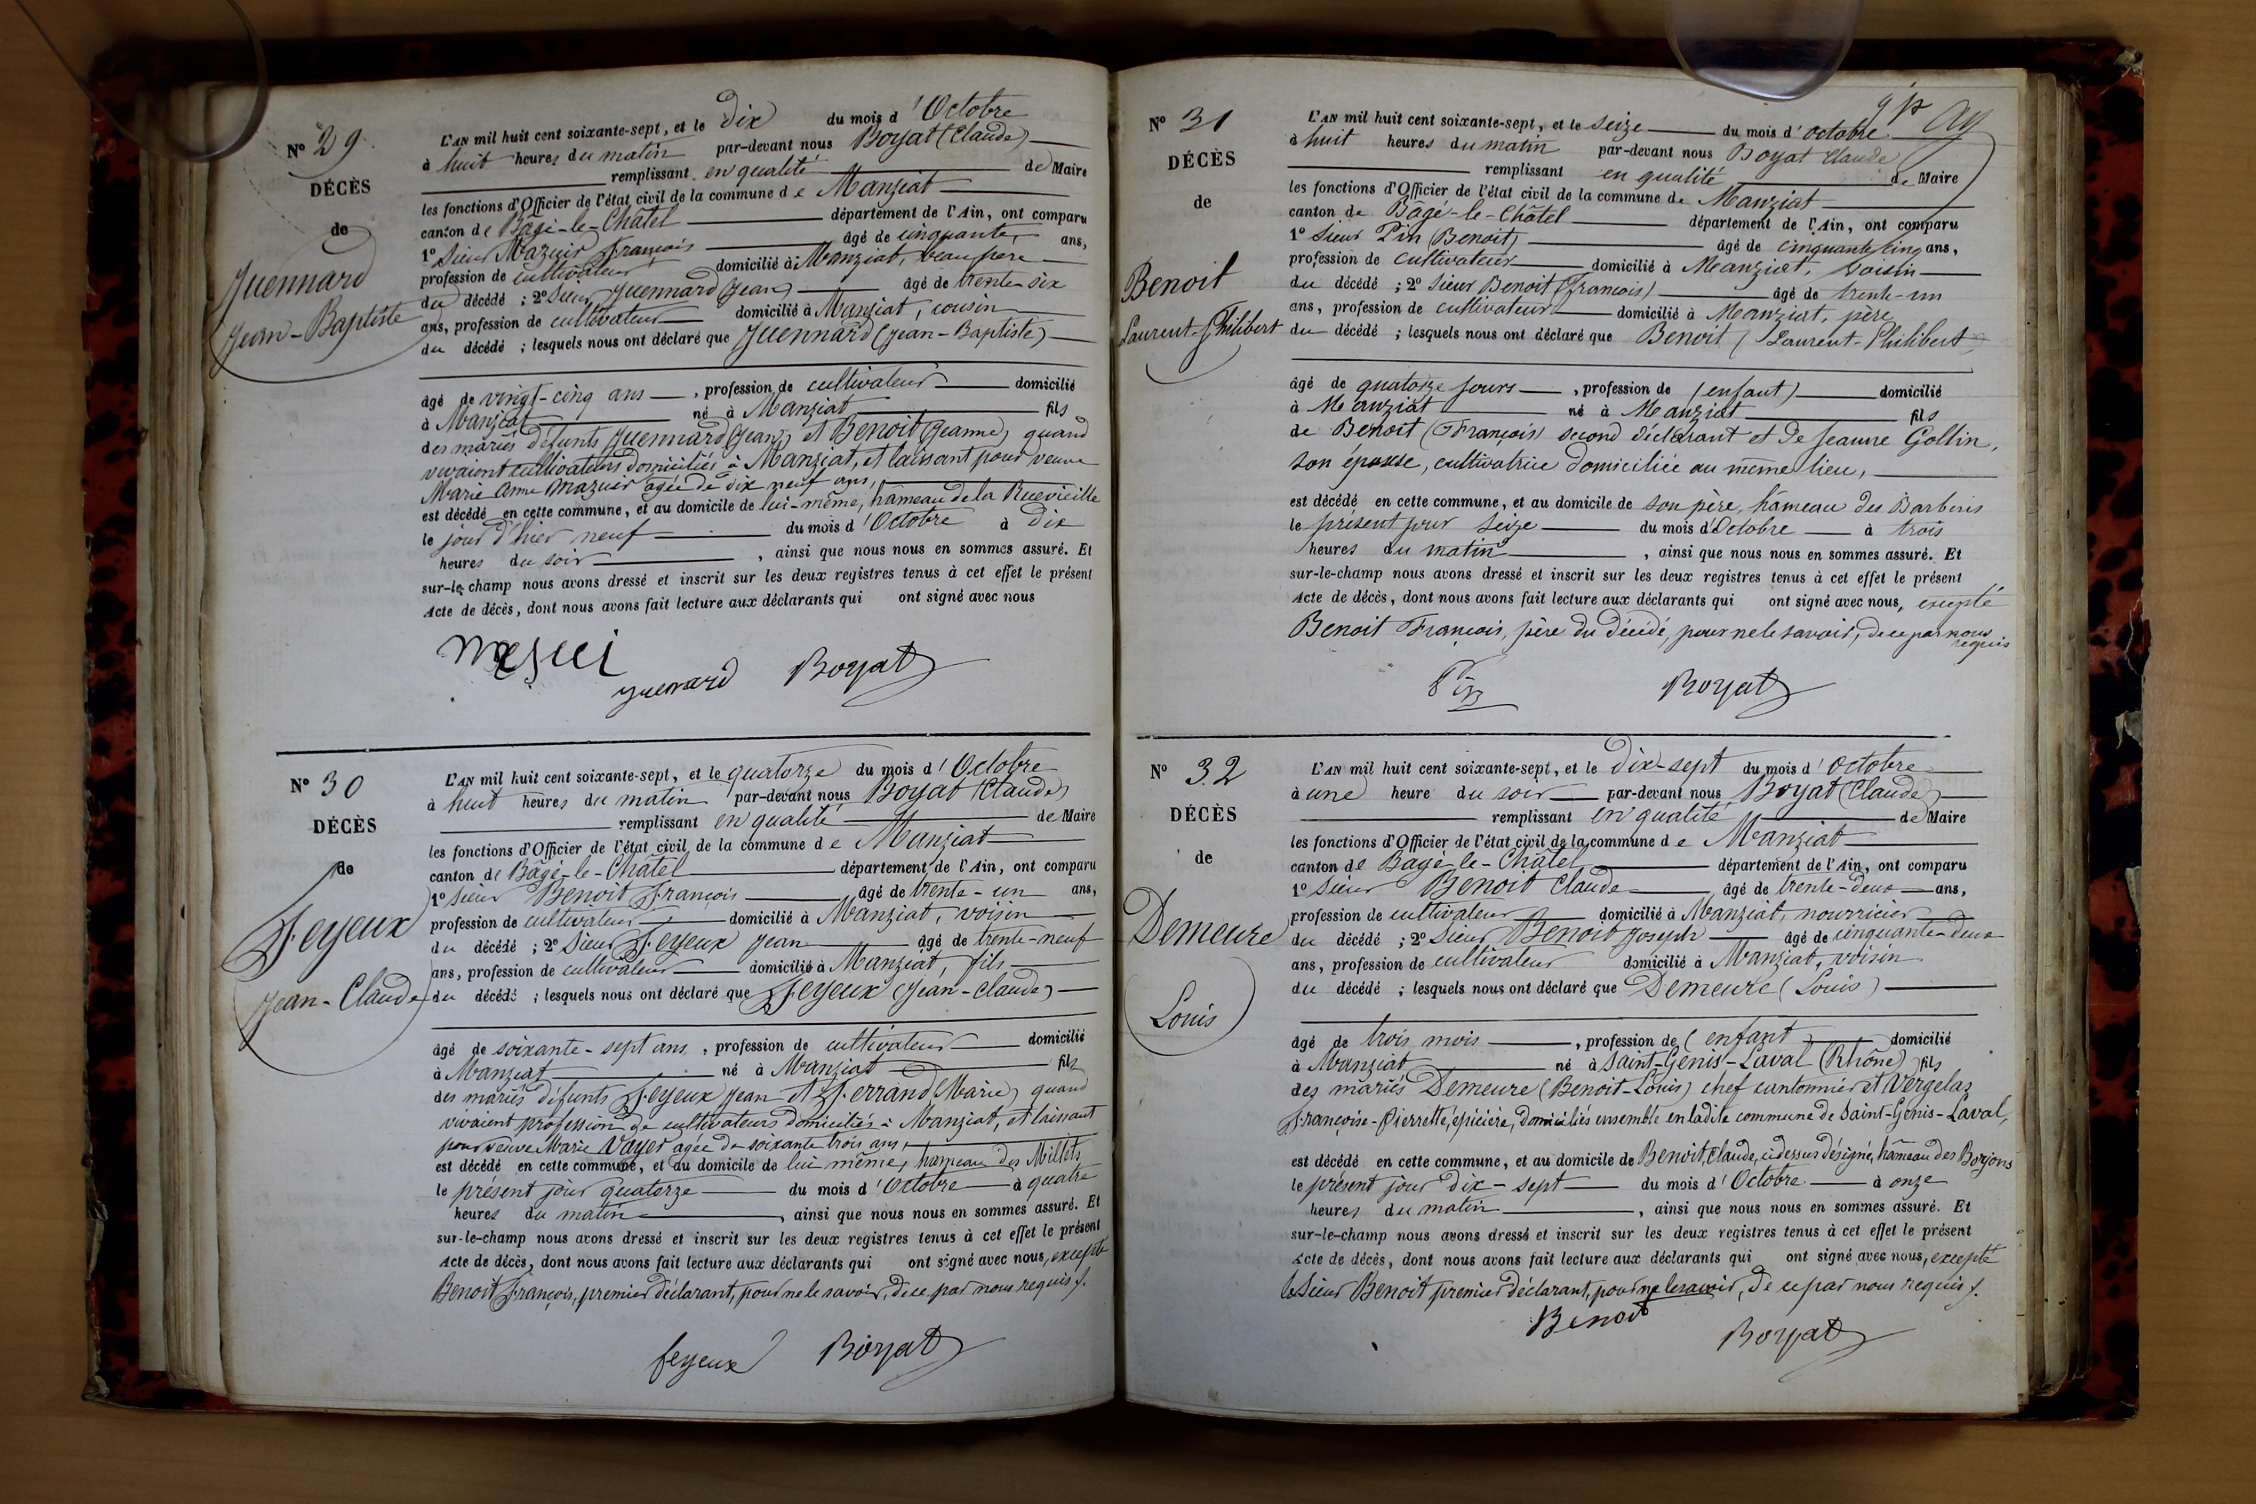 N° 29
DÉCÈS
de
Juennard
Jean-Baptiste
L'AN mil huit cent soixante-sept, et le dix du mois d'Octobre
à huit heures du matin par-devant nous Boyat (Claude)
remplissant en qualité de Maire
les fonctions d'Officier de l'état civil de la commune de Manziat
canton de Bâgé-le-Châtel département de l'Ain, ont comparu
1° Sieur Mazuir François âgé de cinquante ans,
profession de cultivateur domicilié à Manziat, beau père
du décédé ; 2° Sieur Juennard (Jean) âgé de trente-six
ans, profession de cultivateur domicilié à Manziat, cousin
du décédé ; lesquels nous ont déclaré que Juennard (Jean-Baptiste)
âgé de vingt-cinq ans, profession de cultivateur domicilié
à Manziat né à Manziat fils
des mariés défunts Juennard (Jean) et Benoit (Jeanne) quand
vivaient cultivateurs domiciliés à Manziat, et laissant pour veuve
Marie Anne Mazuir agée de dix neuf ans,
est décédé en cette commune, et au domicile de lui-même, hameau de la Ruevieille
le jour d'hier neuf du mois d'Octobre à dix
heures du soir, ainsi que nous nous en sommes assuré. Et
sur-le-champ nous avons dressé et inscrit sur les deux registres tenus à cet effet le présent
Acte de décès, dont nous avons fait lecture aux déclarants qui ont signé avec nous
Juenard Boyat
N° 30
DÉCÈS
de
Feyeux
Jean-Claude
L'AN mil huit cent soixante-sept, et le quatorze du mois d'Octobre
à huit heures du matin par-devant nous Boyat (Claude)
remplissant en qualité de Maire
les fonctions d'Officier de l'état civil de la commune de Manziat
canton de Bâgé-le-Châtel département de l'Ain, ont comparu
1° Sieur Benoit François âgé de trente-un ans,
profession de cultivateur domicilié à Manziat, voisin
du décédé ; 2° Sieur Feyeux Jean âgé de trente-neuf
ans, profession de cultivateur domicilié à Manziat, fils
du décédé ; lesquels nous ont déclaré que Feyeux (Jean-Claude)
âgé de soixante-sept ans, profession de cultivateur domicilié
à Manziat né à Manziat fils
des mariés défunts Feyeux Jean et Ferrand (Marie) quand
vivaient profession de cultivateurs domiciliés à Manziat, et laissant
pour veuve Marie Voyer agée de soixante trois ans,
est décédé en cette commune, et au domicile de lui même, hameau des Millets
le présent jour quatorze du mois d'Octobre à quatre
heures du matin, ainsi que nous nous en sommes assuré. Et
sur-le-champ nous avons dressé et inscrit sur les deux registres tenus à cet effet le présent
Acte de décès, dont nous avons fait lecture aux déclarants qui ont signé avec nous, excepté
Benoit François, premier déclarant, pour ne le savoir, de ce par nous requis.
feyeux Boyat
N° 31
DÉCÈS
de
Benoit
Laurent-Philibert
L'AN mil huit cent soixante-sept, et le seize du mois d'octobre
à huit heures du matin par-devant nous Boyat Claude
remplissant en qualité de Maire
les fonctions d'Officier de l'état civil de la commune de Manziat
canton de Bâgé-le-Châtel département de l'Ain, ont comparu
1° Sieur Pin (Benoit) âgé de cinquante cinq ans,
profession de cultivateur domicilié à Manziat, voisin
du décédé ; 2° Sieur Benoit (François) âgé de trente-un
ans, profession de cultivateur domicilié à Manziat, père
du décédé ; lesquels nous ont déclaré que Benoit (Laurent-Philibert)
âgé de quatorze jours, profession de (enfant) domicilié
à Manziat né à Manziat fils
de Benoit (François) second déclarant et de Jeanne Gollin,
son épouse, cultivatrice domiciliée au même lieu,
est décédé en cette commune, et au domicile de son père, hameau des Barberis
le présent jour seize du mois d'Octobre à trois
heures du matin, ainsi que nous nous en sommes assuré. Et
sur-le-champ nous avons dressé et inscrit sur les deux registres tenus à cet effet le présent
Acte de décès, dont nous avons fait lecture aux déclarants qui ont signé avec nous, excepté
Benoit François, père du décédé, pour ne le savoir, de ce par nous requis.
Pin Boyat
N° 32
DÉCÈS
de
Demeure
Louis
L'AN mil huit cent soixante-sept, et le dix-sept du mois d'Octobre
à une heure du soir par-devant nous Boyat (Claude)
remplissant en qualité de Maire
les fonctions d'Officier de l'état civil de la commune de Manziat
canton de Bagé-le-Châtel département de l'Ain, ont comparu
1° Sieur Benoit Claude âgé de trente-deux ans,
profession de cultivateur domicilié à Manziat, nourricier
du décédé ; 2° Sieur Benoit Joseph âgé de cinquante-deux
ans, profession de cultivateur domicilié à Manziat, voisin
du décédé ; lesquels nous ont déclaré que Demeure (Louis)
âgé de trois mois, profession de (enfant) domicilié
à Manziat né à Saint-Genis-Laval (Rhône) fils
des mariés Demeure (Benoit-Louis) chef cantonnier et Vergelas
Françoise-Pierrette, épicière, domiciliés ensemble en ladite commune de Saint-Genis-Laval,
est décédé en cette commune, et au domicile de Benoit, Claude, ci dessus désigné, hameau des Borjons
le présent jour dix-sept du mois d'Octobre à onze
heures du matin, ainsi que nous nous en sommes assuré. Et
sur-le-champ nous avons dressé et inscrit sur les deux registres tenus à cet effet le présent
Acte de décès, dont nous avons fait lecture aux déclarants qui ont signé avec nous, excepté
le Sieur Benoit premier déclarant, pour ne le savoir, de ce par nous requis.
Benoit
Boyat